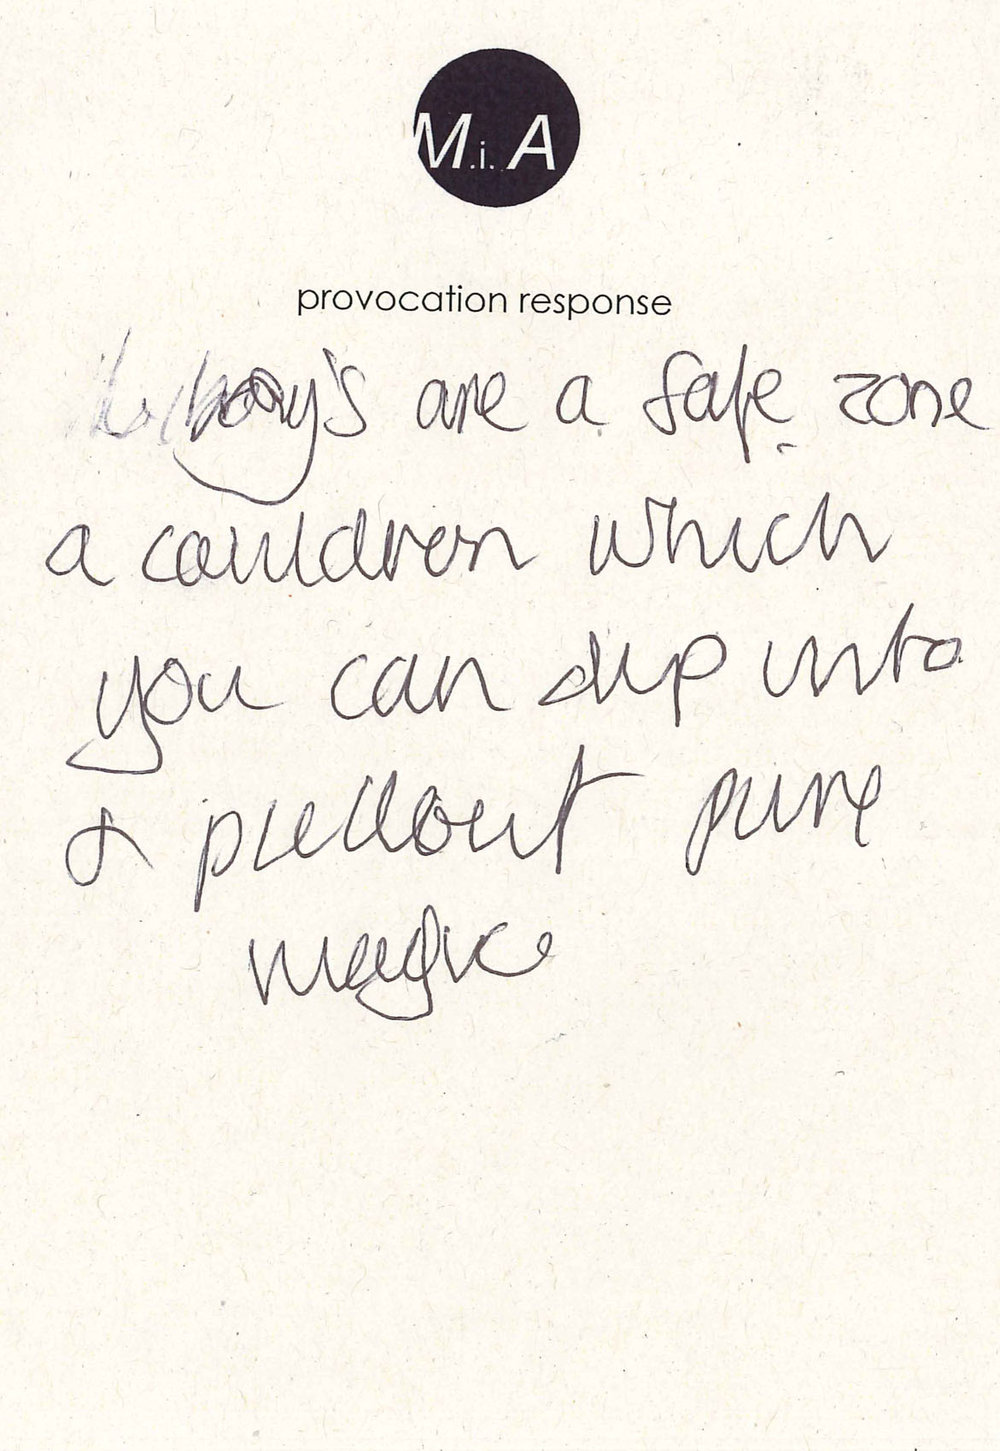 M.i.A
provocation response
are a safe zone
a cauldron which
you can dip into
& pull out pure
magic